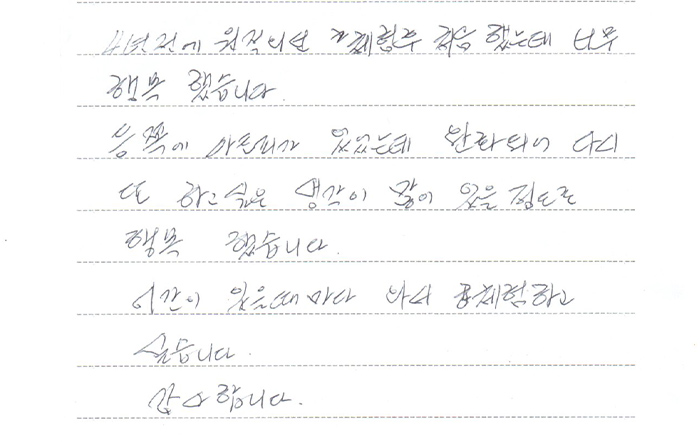 4년전에 원적외선 체험을 처음 했는데 너무
행복 했습니다.
등쪽에 아토피가 있었는데 완화되어 다시
또 하고 싶은 생각이 많이 있을 정도로
행복 했습니다.
시간이 있을때마다 다시 체험하고
싶습니다.
감사합니다.